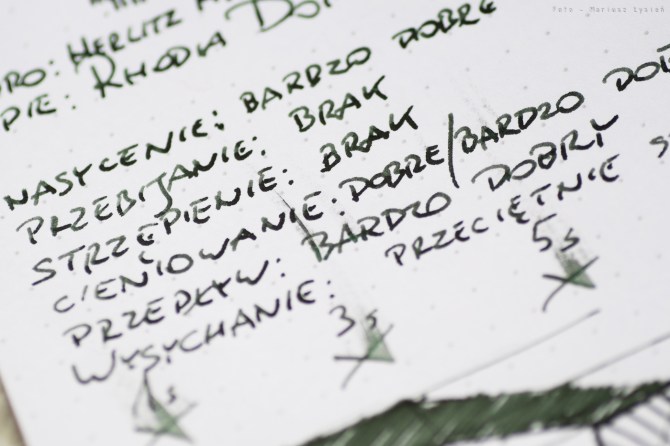 Foto - Mariusz Łysiak
PIÓRO: HERLITZ
RHODIA
NASYCENIE: BARDZO DOBRE
PRZEBIJANIE: BRAK
STRZĘPIENIE: BRAK
CIENIOWANIE: DOBRE/BARDZO
PRZEPŁYW: BARDZO DOBRY
WYSYCHANIE: PRZECIĘTNIE
1s 3s 5s